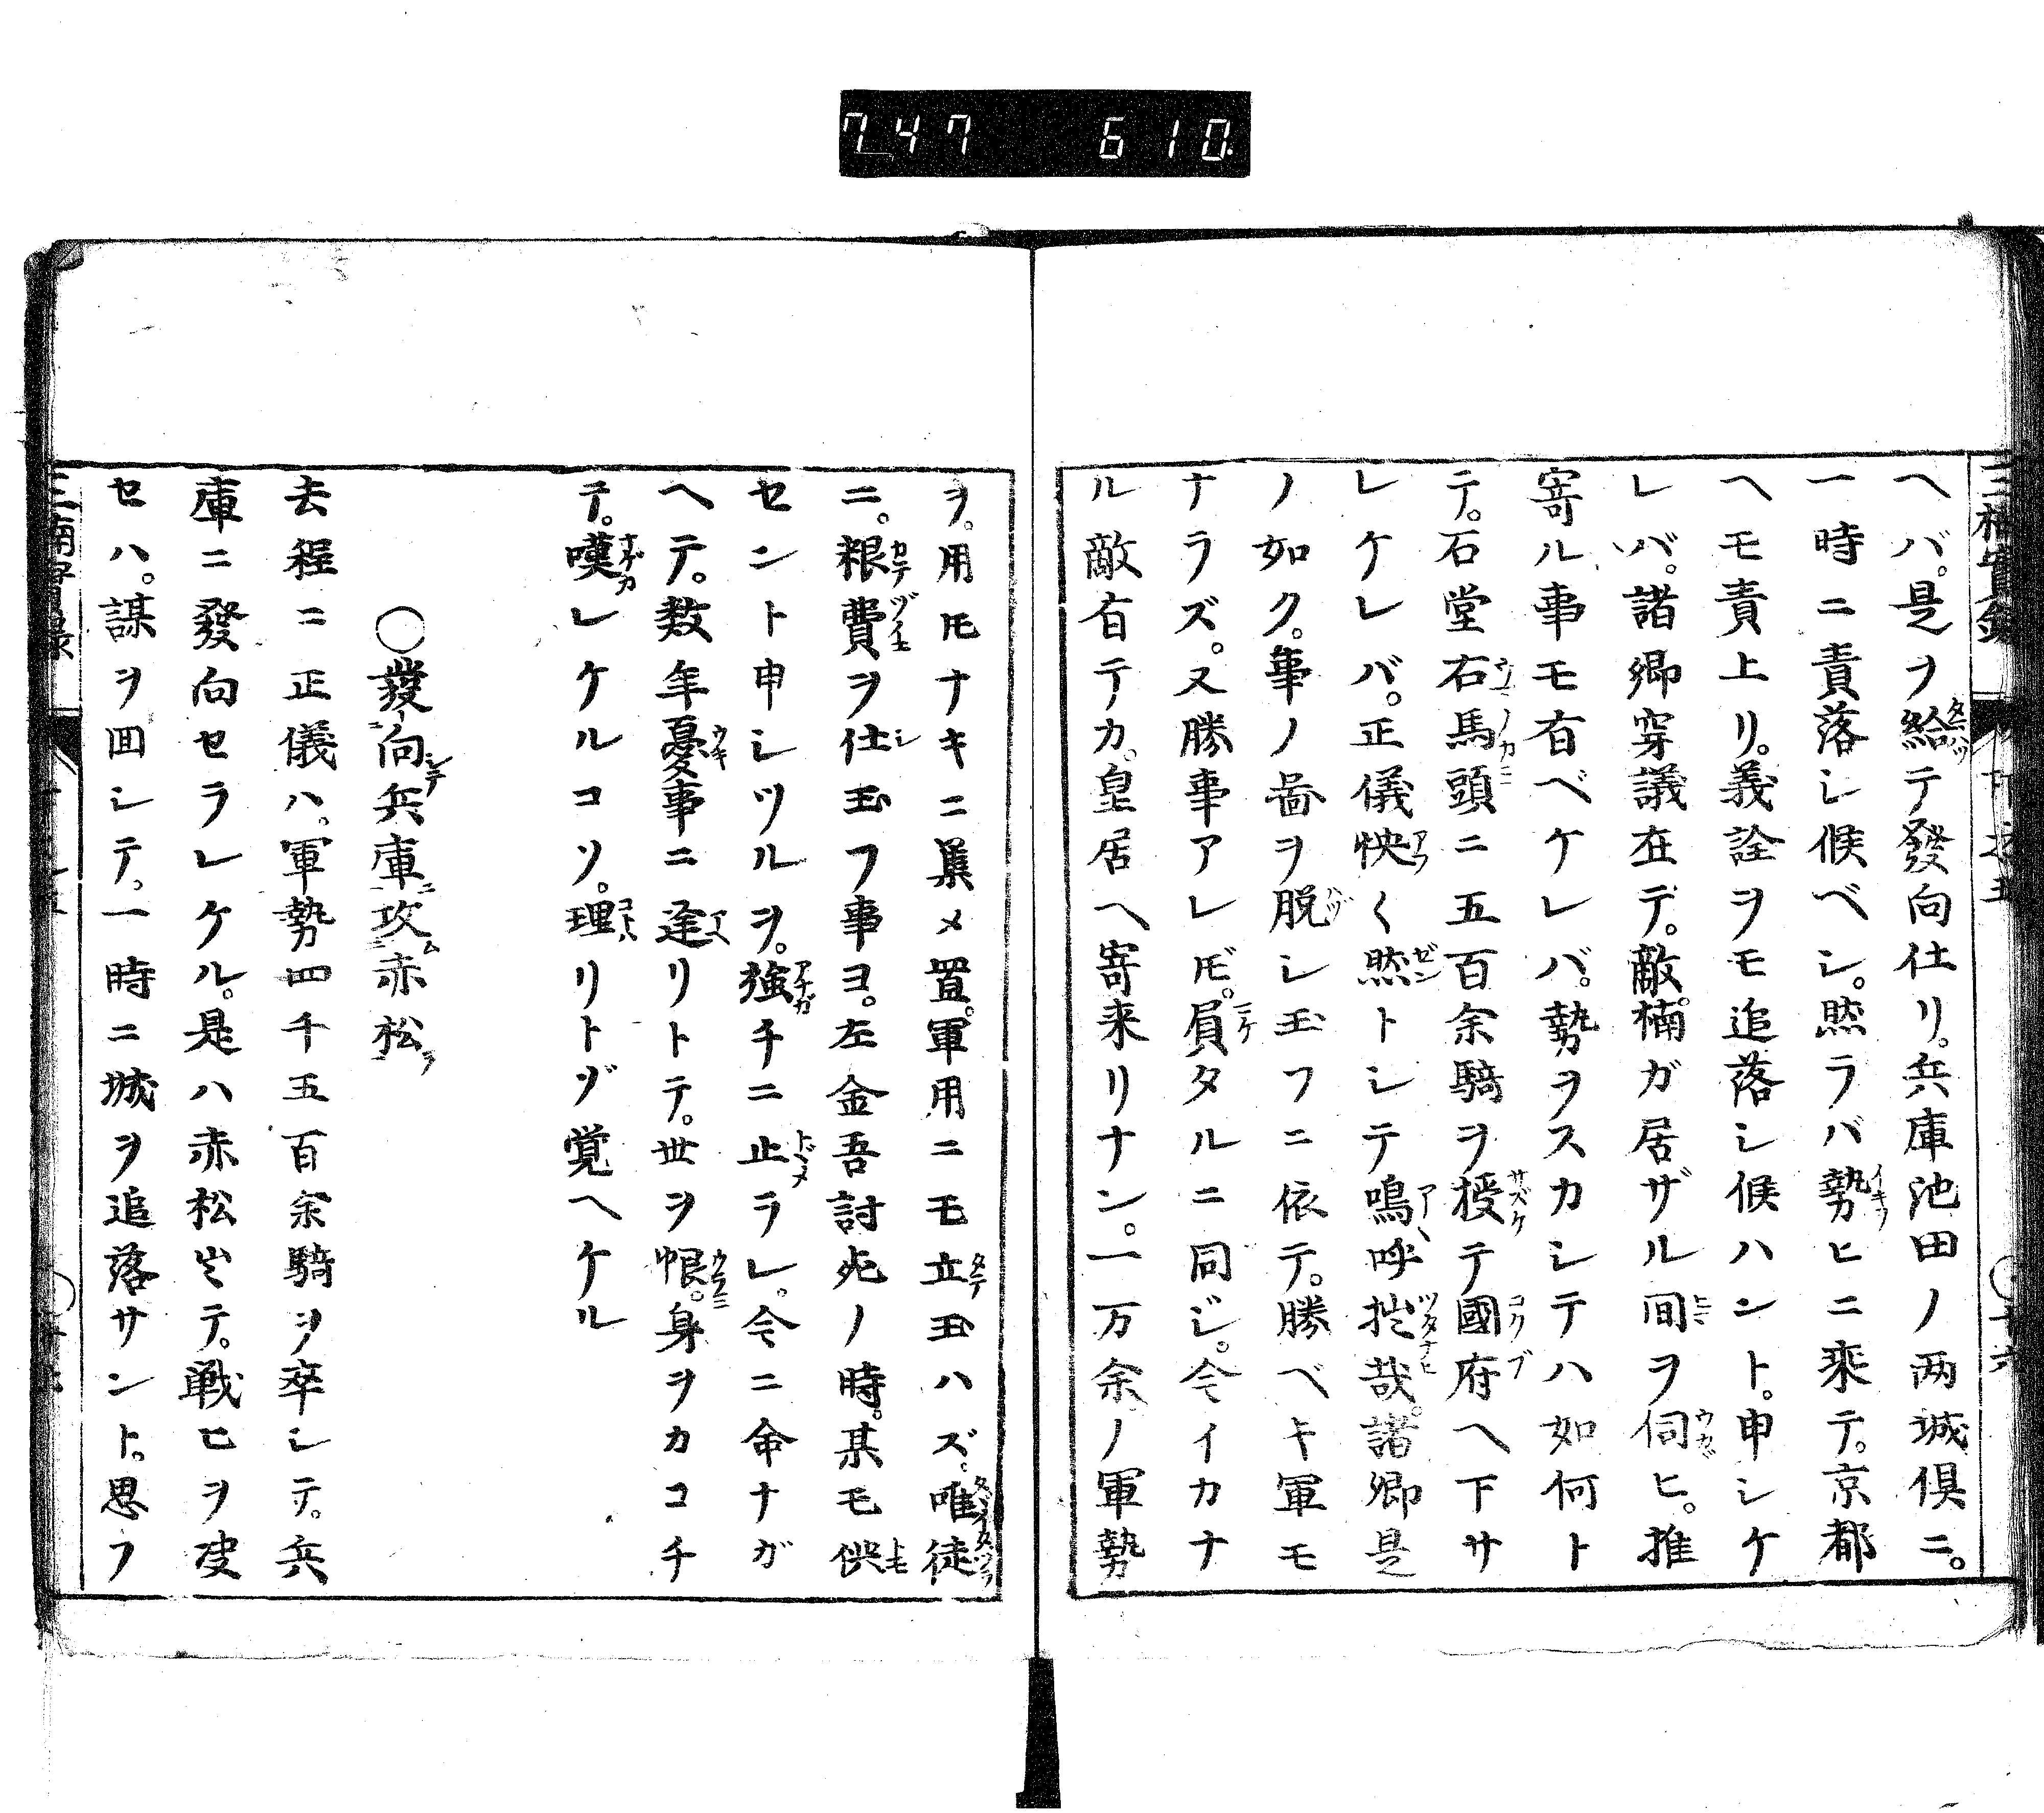 747 610
ヘバ。是ヲ給テ發向仕リ。兵庫池田ノ両城倶ニ。
一時ニ責落シ候ベシ。然ラバ勢ヒニ乗テ。京都
ヘモ責上リ。義詮ヲモ追落シ候ハント。申シケ
レバ。諸卿穿議在テ。敵。楠ガ居ザル間ヲ伺ヒ。推
寄ル事モ有ベケレバ。勢ヲスカシテハ如何ト
テ。石堂右馬頭ニ五百余騎ヲ授テ國府ヘ下サ
レケレバ。正儀怏〱然トシテ鳴呼拙哉。諸卿是
ノ如ク。事ノ啚ヲ脱シ玉フニ依テ。勝ベキ軍モ
ナラズ。又勝事アレドモ。負タルニ同ジ。今イカナ
ル敵有テカ。皇居ヘ寄来リナン。一万余ノ軍勢
ヲ。用トモナキニ集メ置。軍用ニモ立玉ハズ。唯徒
ニ。粮費ヲ仕玉フ事ヨ。左金吾討死ノ時。某モ供
セント申シツルヲ。強チニ止ラレ。今ニ命ナガ
ヘテ。数年憂事ニ逢リトテ。世ヲ恨。身ヲカコチ
テ。嘆レケルコソ。理リトゾ覚ヘケル
〇發向兵庫攻赤松
去程ニ正儀ハ。軍勢四千五百余騎ヲ卒シテ。兵
庫ニ發向セラレケル。是ハ赤松出テ。戦ヒヲ決
セハ。謀ヲ回シテ。一時ニ城ヲ追落サント。思フ